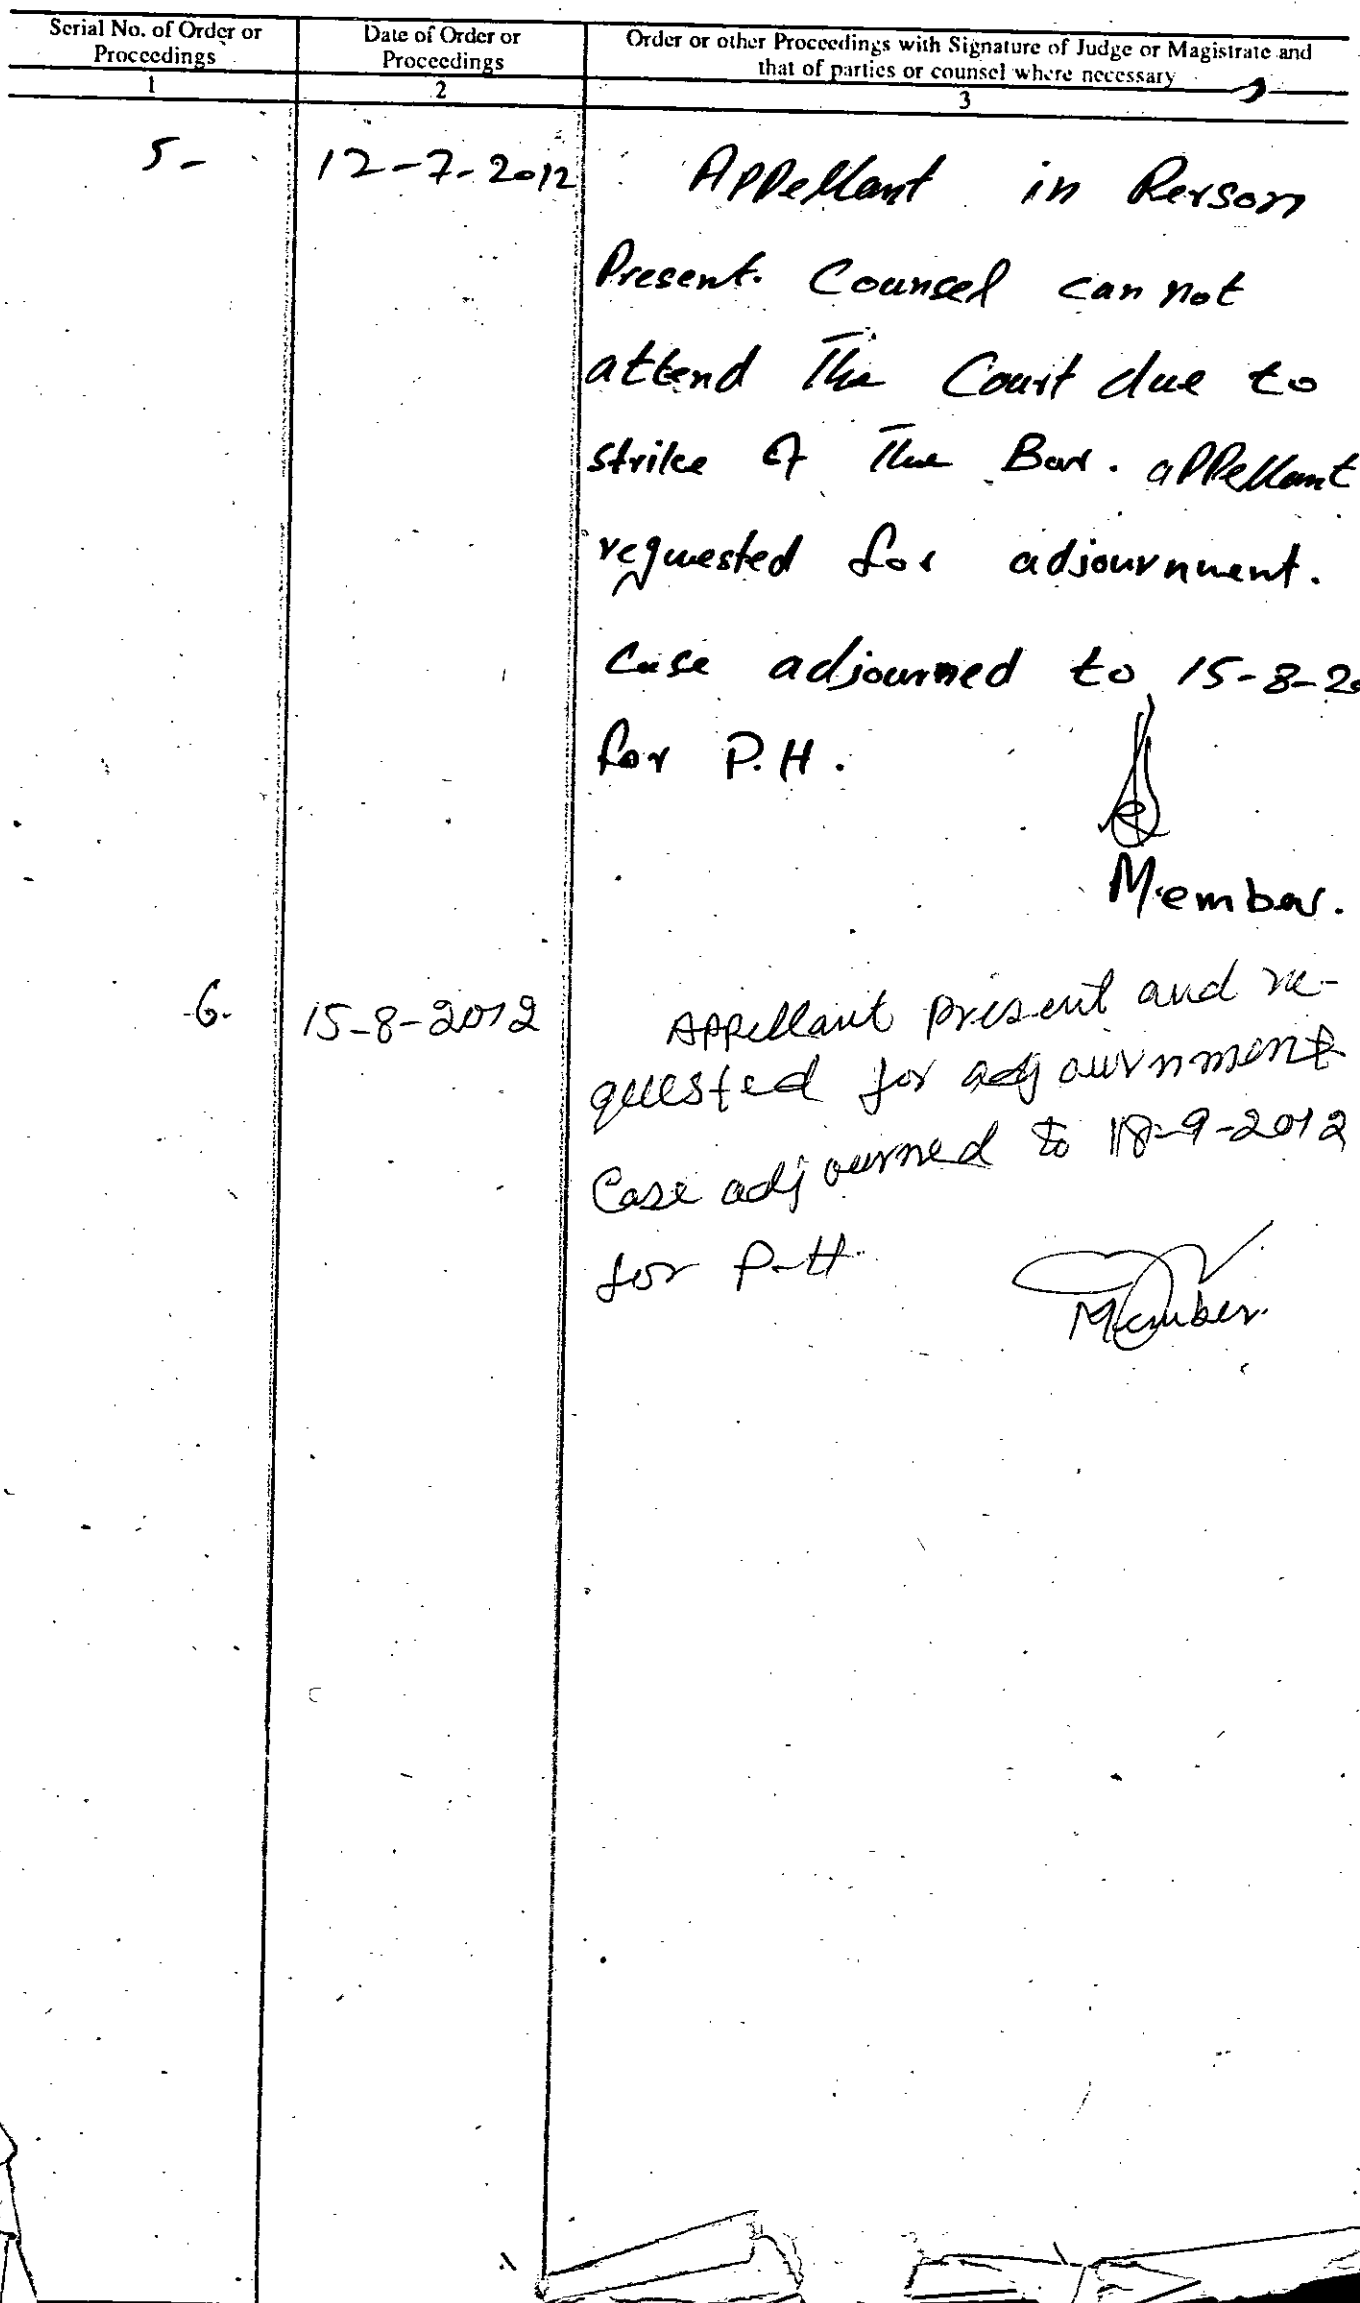 Serial No. of Order or Proceedings
Date of Order or Proceedings
Order or other Proceedings with Signature of Judge or Magistrate and that of parties or counsel where necessary
1
2
3
5-
12-7-2012
Appellant in Person
Present. Counsel can not
attend The Court due to
strike of The Bar. appellant
requested for adjournment.
Case adjourned to 15-8-20
for P.H.
Member.
-6-
15-8-2012
Appellant present and re-
quested for adjournment
Case adjourned to 18-9-2012
for P-H
Member.